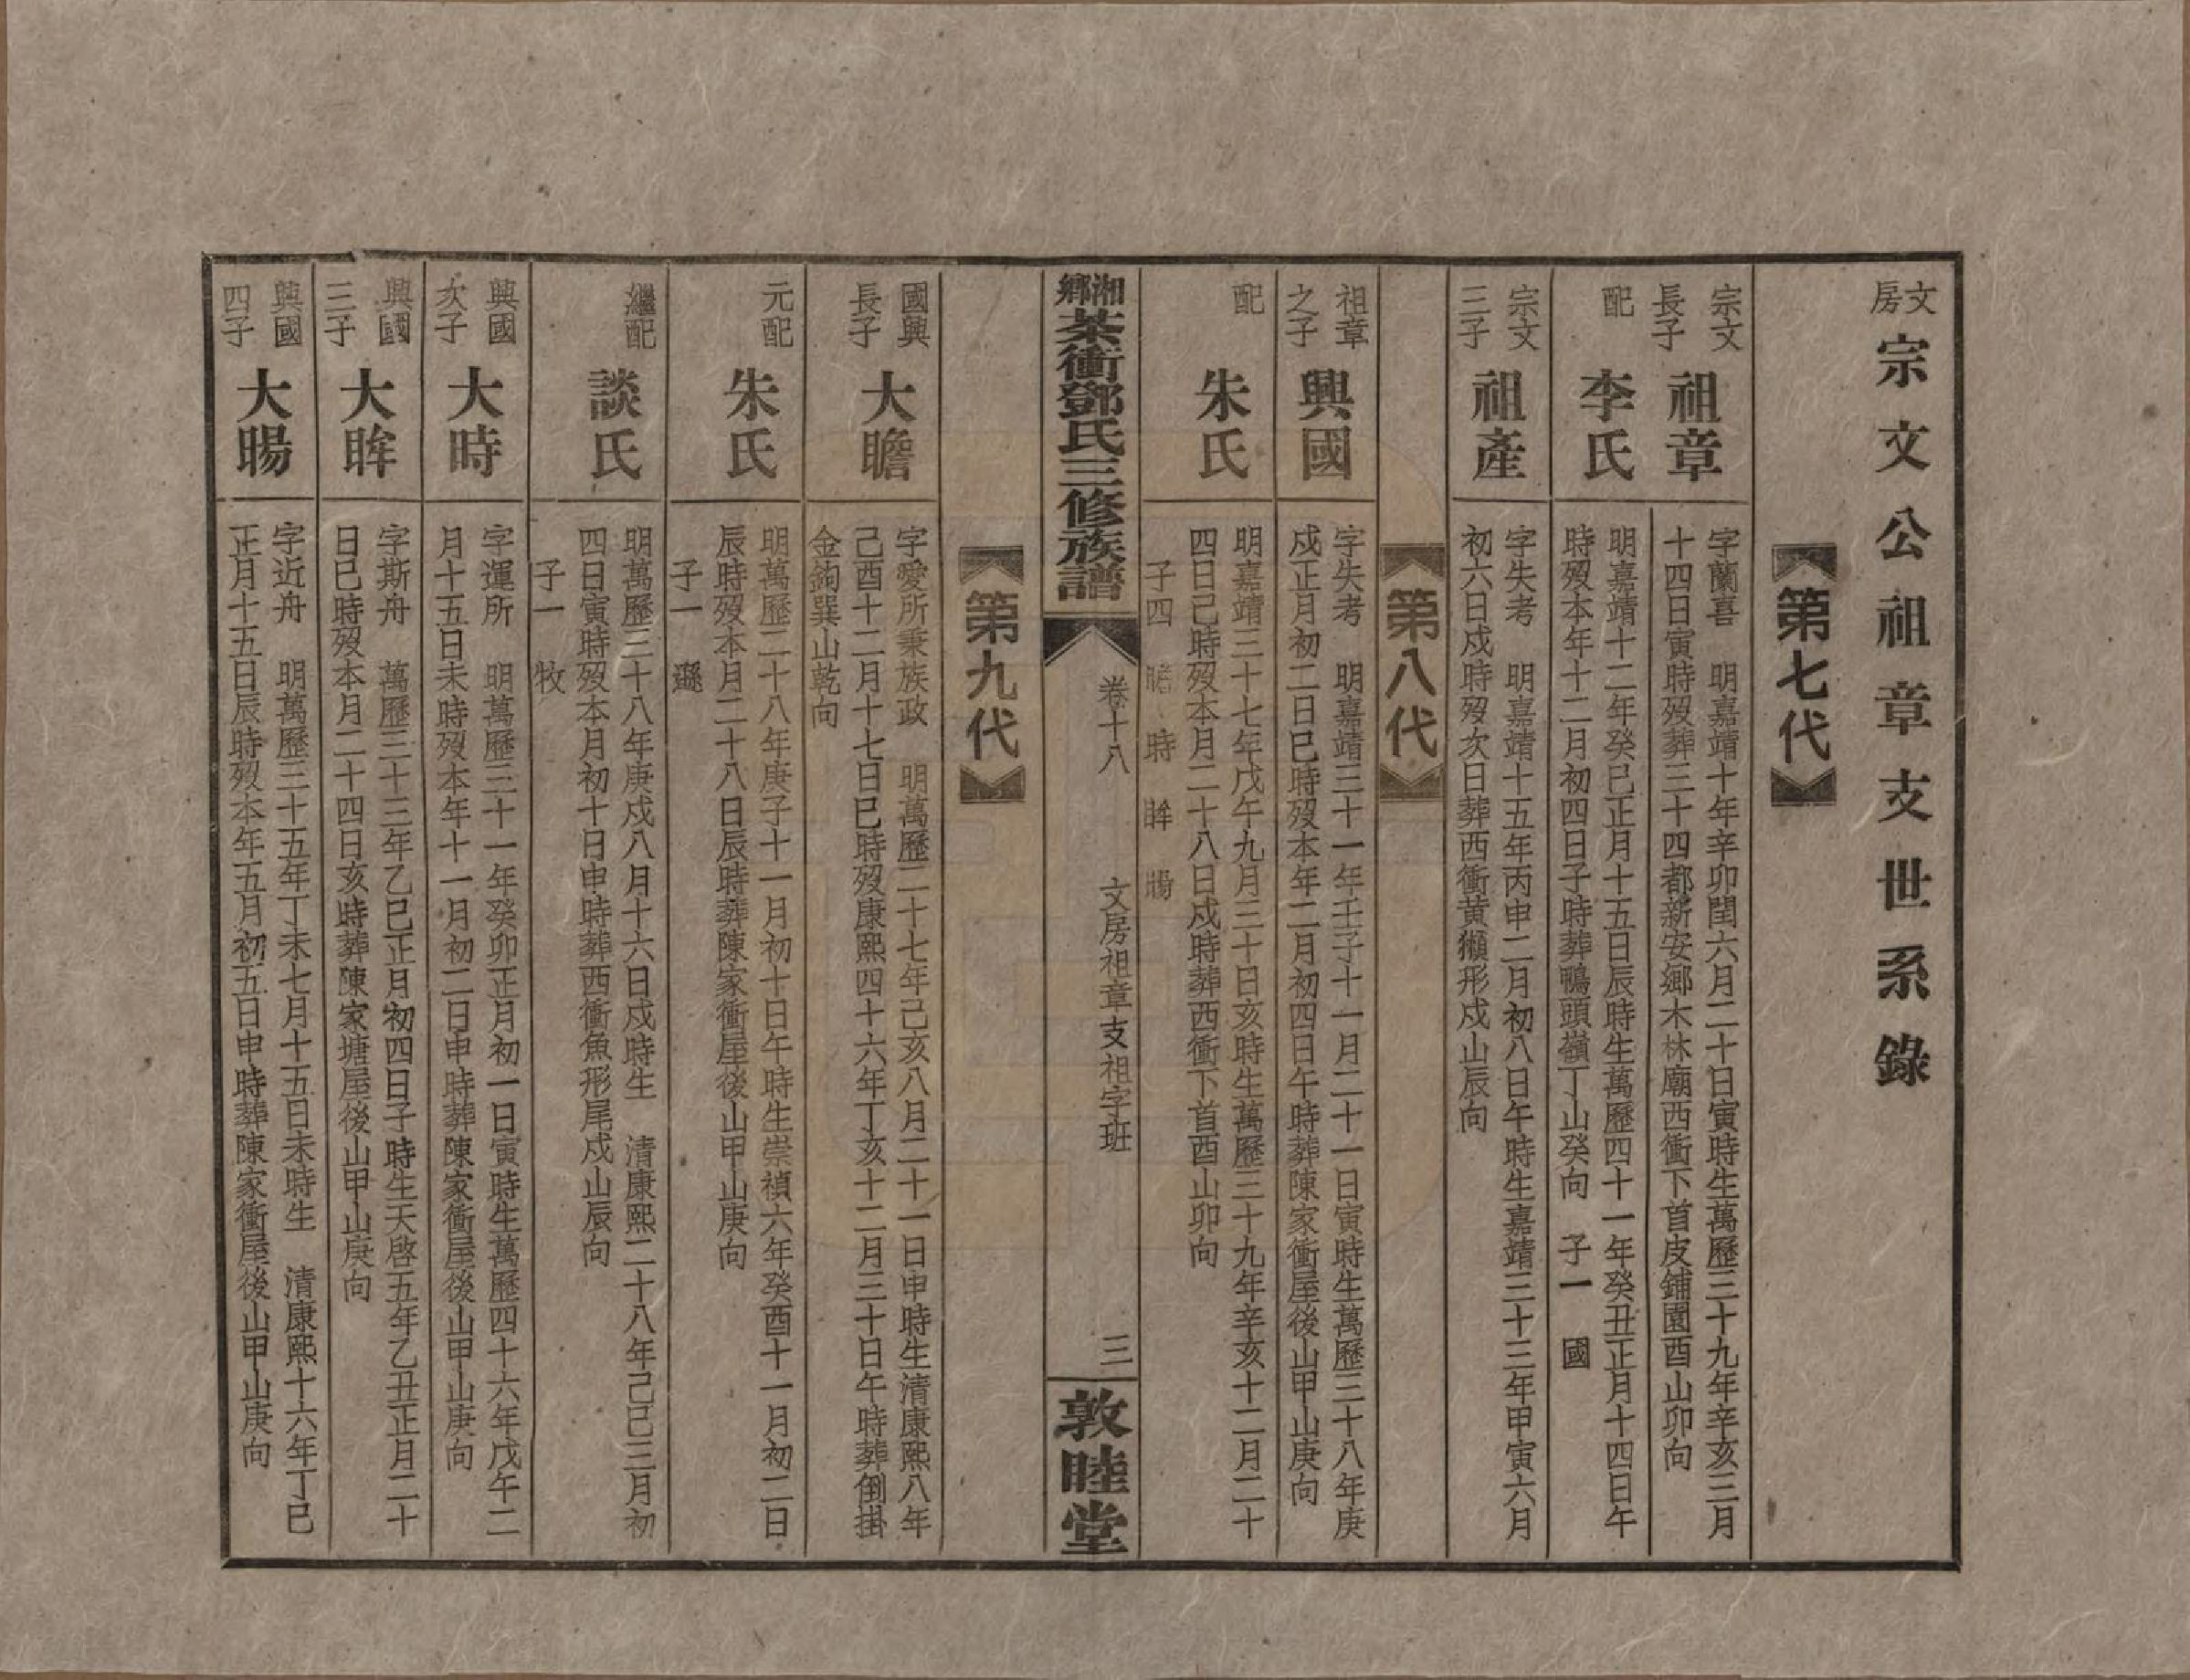 文房 宗文公祖章支世系錄
第七代
宗文長子 祖章
字蘭喜 明嘉靖十年辛卯閏六月二十日寅時生萬歷三十九年辛亥三月
十四日寅時歿葬三十四都新安鄉木林廟西衝下首皮鋪園酉山卯向
配 李氏
明嘉靖十二年癸巳正月十五日辰時生萬歷四十一年癸丑正月十四日午
時歿本年十二月初四日子時葬鴨頭嶺丁山癸向 子一 國
宗文三子 祖產
字失考 明嘉靖十五年丙申二月初八日午時生嘉靖三十三年甲寅六月
初六日戍時歿次日葬西衝黃獺形戍山辰向
第八代
祖章之子 興國
字失考 明嘉靖三十一年壬子十一月二十一日寅時生萬歷三十八年庚
戍正月初二日巳時歿本年二月初四日午時葬陳家衝屋後山甲山庚向
配 朱氏
明嘉靖三十七年戊午九月三十日亥時生萬歷三十九年辛亥十二月二十
四日己時歿本月二十八日戍時葬西衝下首酉山卯向
子四 瞻 時 眸 暘
湘鄉茶衝鄧氏三修族譜
卷十八 文房祖章支祖字班 三
敦睦堂
第九代
國興長子 大瞻
字愛所秉族政 明萬歷二十七年己亥八月二十一日申時生清康熙八年
己酉十二月十七日巳時歿康熙四十六年丁亥十二月三十日午時葬倒掛
金鉤巽山乾向
元配 朱氏
明萬歷二十八年庚子十一月初十日午時生崇禎六年癸酉十一月初二日
辰時歿本月二十八日辰時葬陳家衝屋後山甲山庚向
子一 遜
繼配 談氏
明萬歷三十八年庚戍八月十六日戍時生 清康熙二十八年己巳三月初
四日寅時歿本月初十日申時葬西衝魚形尾戍山辰向
子一 牧
興國次子 大時
字運所 明萬歷三十一年癸卯正月初一日寅時生萬歷四十六年戊午二
月十五日未時歿本年十一月初二日申時葬陳家衝屋後山甲山庚向
興國三子 大眸
字斯舟 萬歷三十三年乙巳正月初四日子時生天啓五年乙丑正月二十
日巳時歿本月二十四日亥時葬陳家塘屋後山甲山庚向
興國四子 大暘
字近舟 明萬歷三十五年丁未七月十五日未時生 清康熙十六年丁巳
正月十五日辰時歿本年五月初五日申時葬陳家衝屋後山甲山庚向